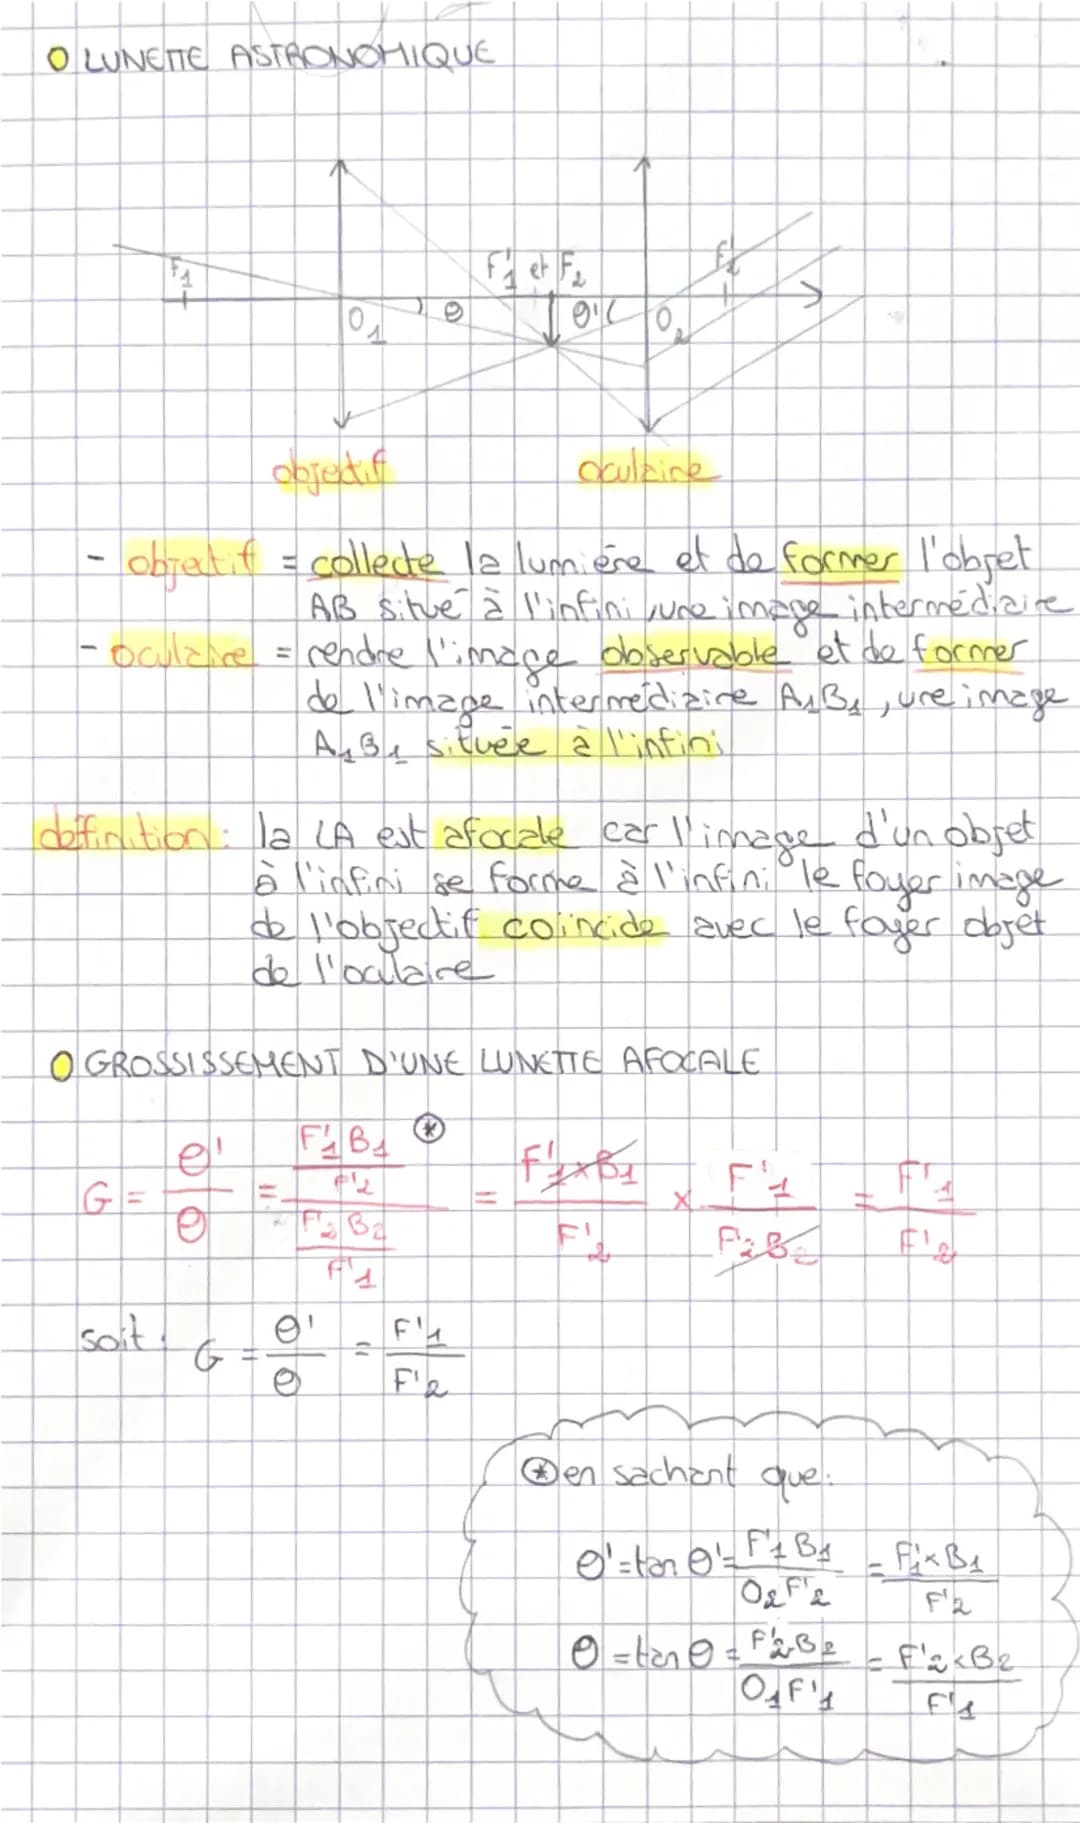 LUNETTE ASTRONOMIQUE
F1 O1 θ F'1 et F2 θ' O2 F'2
objectif oculaire
- objectif = collecte la lumière et de former l'objet
AB situé à l'infini, une image intermédiaire
- oculaire = rendre l'image observable et de former
de l'image intermédiaire A1B1, une image
A1B1 située à l'infini
définition : la LA est afocale car l'image d'un objet
à l'infini se forme à l'infini le foyer image
de l'objectif coïncide avec le foyer objet
de l'oculaire
GROSSISSEMENT D'UNE LUNETTE AFOCALE
G = θ'/θ = (F'1B1/F'2)/(F'2B2/F'1) * = F'1×B1/F'2 × F'1/F'2B2 = F'1/F'2
soit : G = θ'/θ = F'1/F'2
* en sachant que :
θ' = tan θ' = F'1B1/O2F'2 = F'1×B1/F'2
θ = tan θ = F'2B2/O1F'1 = F'2×B2/F'1